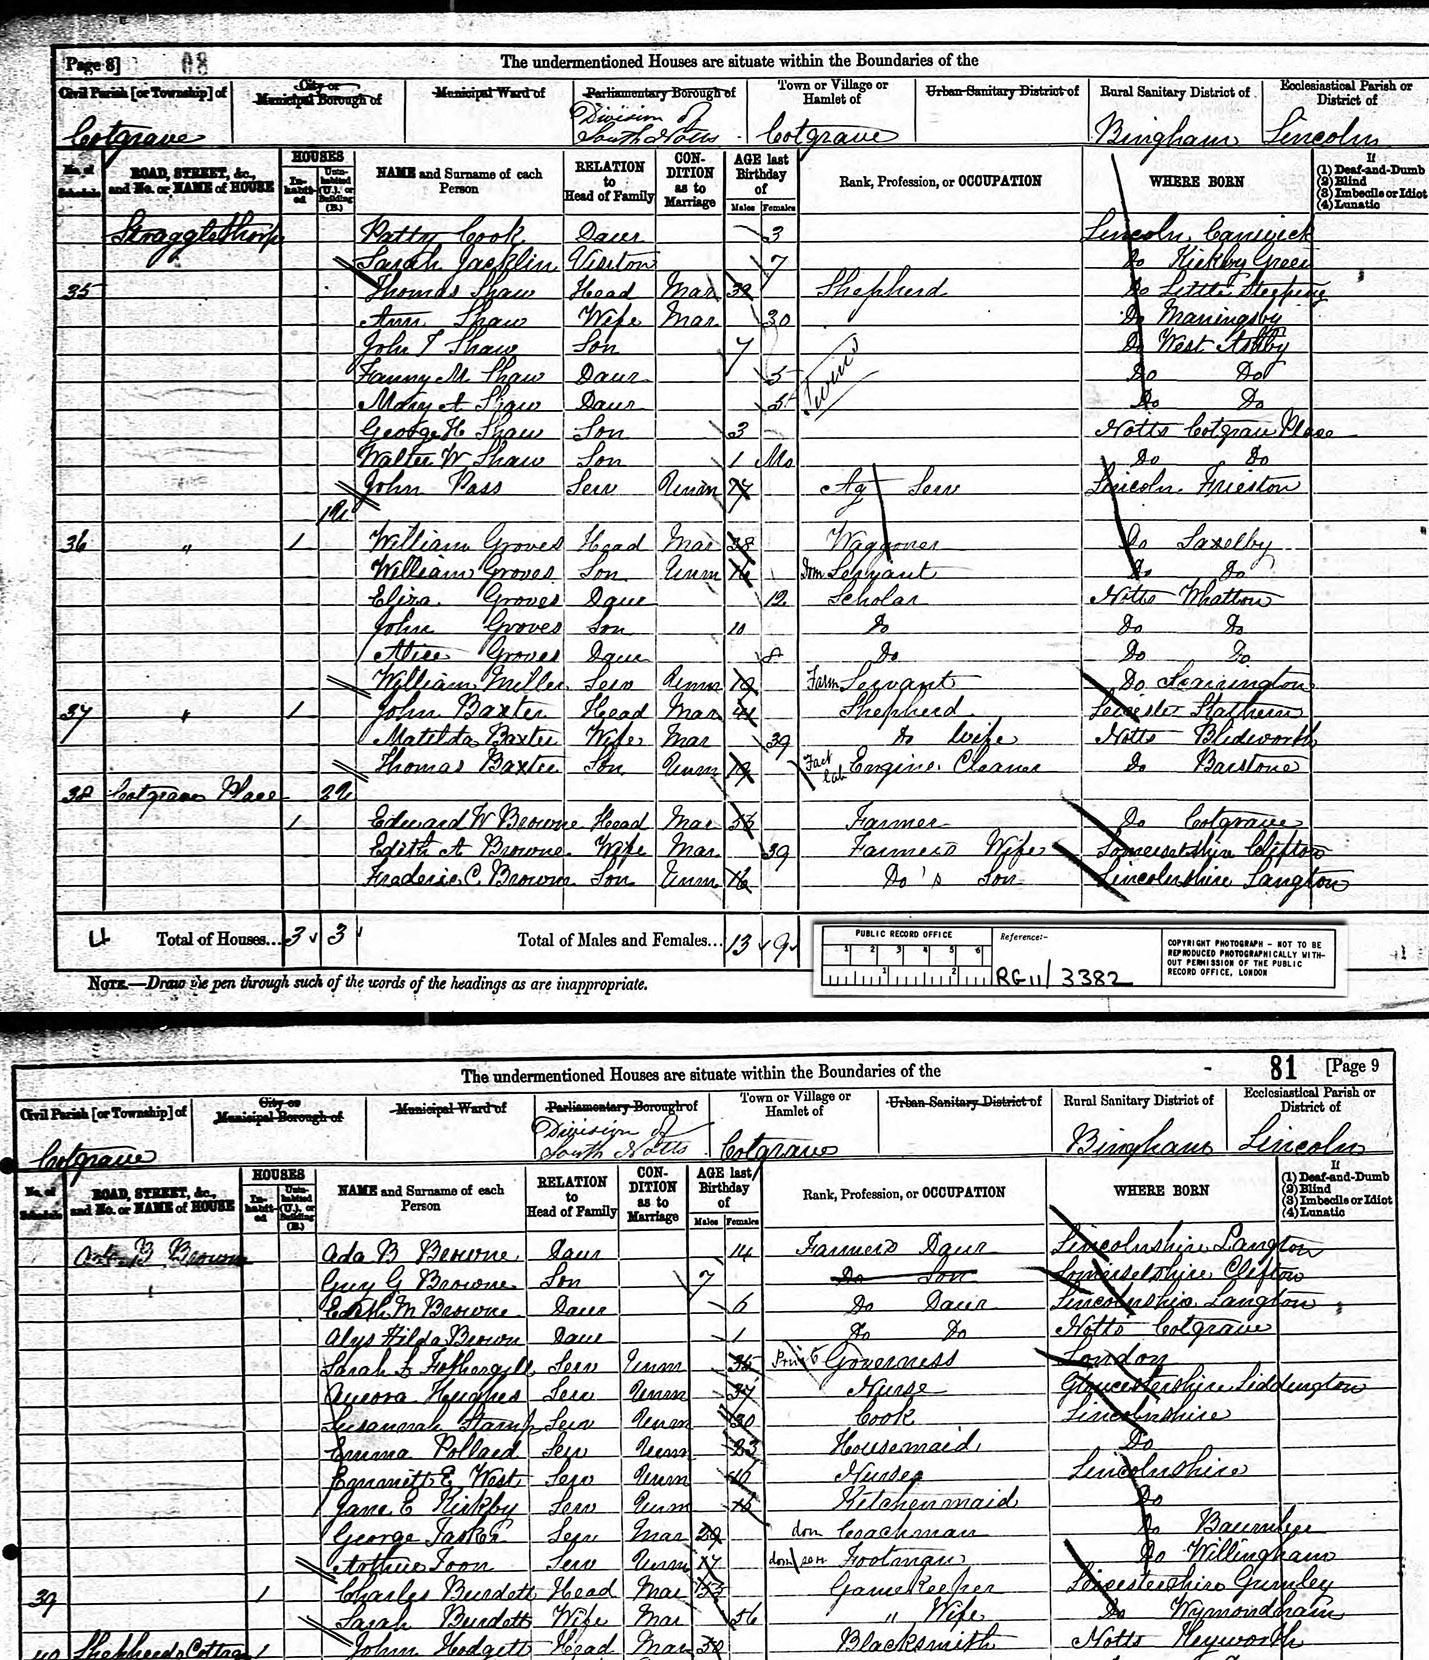 Page 8] 08 The undermentioned Houses are situate within the Boundaries of the
Civil Parish [or Township] of City or Municipal Borough of Municipal Ward of Parliamentary Borough of Town or Village or Hamlet of Urban Sanitary District of Rural Sanitary District of Ecclesiastical Parish or District of
Cotgrave Division of South Notts Cotgrave Bingham Lincoln
No. of Schedule ROAD, STREET, &c., and No. or NAME of HOUSE HOUSES Inhabited Uninhabited (U.), or Building (B.) NAME and Surname of each Person RELATION to Head of Family CONDITION as to Marriage AGE last Birthday of Males Females Rank, Profession, or OCCUPATION WHERE BORN If (1) Deaf-and-Dumb (2) Blind (3) Imbecile or Idiot (4) Lunatic
Stragglethorpe Patty Cook Daur 3 Lincoln Canwick
Sarah Jacklin Visitor 7 Do Kirkby Green
35 Thomas Shaw Head Mar 32 Shepherd Do Little Steeping
Ann Shaw Wife Mar 30 Do
John T Shaw Son 7 Do West Ashby
Fanny M Shaw Daur 5 Twins Do Do
Mary A Shaw Daur 5 Do Do
George H Shaw Son 3 Notts Cotgrave Place
Walter W Shaw Son 1 Mo Do Do
John Pass Serv Unm Ag Serv Lincoln Frieston
1U
36 " 1 William Groves Head Mar 38 Waggoner Do Saxelby
William Groves Son Unm 16 Dom Servant Do Do
Eliza Groves Daur 12 Scholar Notts Whatton
John Groves Son 10 Do Do Do
Alice Groves Daur 8 Do Do Do
William Miller Serv Unm 19 Farm Servant Do Scarrington
37 " 1 John Baxter Head Mar 41 Shepherd Leicester Stathern
Matilda Baxter Wife Mar 39 Do Wife Notts Blidworth
Thomas Baxter Son Unm 19 Fact Lab Engine Cleaner Do Barstone
38 Cotgrave Place 2U
1 Edward W Browne Head Mar Farmer Do Cotgrave
Edith A Browne Wife Mar 39 Farmers Wife Somersetshire Clifton
Frederic C Browne Son Unm 16 Do's Son Lincolnshire Langton
4 Total of Houses... 3 3 Total of Males and Females... 13 9
PUBLIC RECORD OFFICE 1 2 3 4 5 6 1 2 Reference:- RG 11/3382 COPYRIGHT PHOTOGRAPH - NOT TO BE REPRODUCED PHOTOGRAPHICALLY WITHOUT PERMISSION OF THE PUBLIC RECORD OFFICE, LONDON
NOTE.—Draw the pen through such of the words of the headings as are inappropriate.
The undermentioned Houses are situate within the Boundaries of the 81 [Page 9
Civil Parish [or Township] of City or Municipal Borough of Municipal Ward of Parliamentary Borough of Town or Village or Hamlet of Urban Sanitary District of Rural Sanitary District of Ecclesiastical Parish or District of
Cotgrave Division of South Notts Cotgrave Bingham Lincoln
No. of Schedule ROAD, STREET, &c., and No. or NAME of HOUSE HOUSES Inhabited Uninhabited (U.), or Building (B.) NAME and Surname of each Person RELATION to Head of Family CONDITION as to Marriage AGE last Birthday of Males Females Rank, Profession, or OCCUPATION WHERE BORN If (1) Deaf-and-Dumb (2) Blind (3) Imbecile or Idiot (4) Lunatic
Ada B Browne Ada B Browne Daur 14 Farmers Daur Lincolnshire Langton
Guy G Browne Son 7 Do Son Somersetshire Clifton
Edith M Browne Daur 6 Do Daur Lincolnshire Langton
Alys Hilda Brown Daur 1 Do Do Notts Cotgrave
Sarah Fothergill Serv Unm 35 Governess London
Aurora Hughes Serv Unm 37 Nurse Gloucestershire Siddington
Susannah Stamp Serv Unm 30 Cook Lincolnshire
Emma Pollard Serv Unm 23 Housemaid Do
Emmitt E West Serv Unm Nurse Lincolnshire
Jane E Kirkby Serv Unm Kitchenmaid Do
George Tasker Serv Mar 29 dom Coachman Do Baumber
Arthur Toon Serv Unm 17 dom serv Footman Do Willingham
39 1 Charles Burdett Head Mar 53 Gamekeeper Leicestershire Gumley
Sarah Burdett Wife Mar 56 " Wife Do Wymondham
40 Shepherds Cottage 1 John Hodgett Head Mar Blacksmith Notts Keyworth